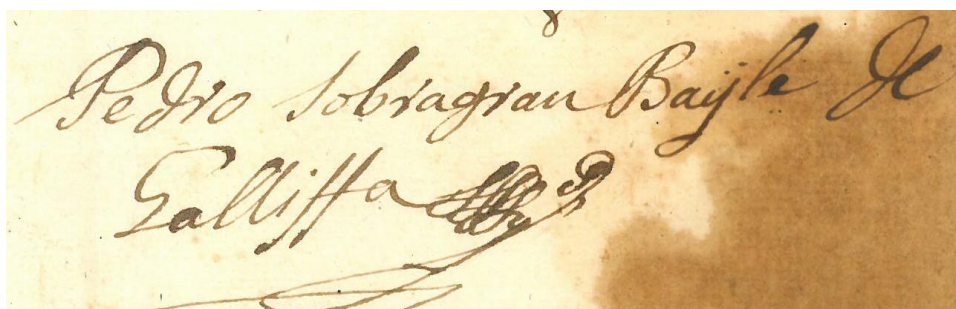 Pedro Sobragran Bayle de
Galliffa